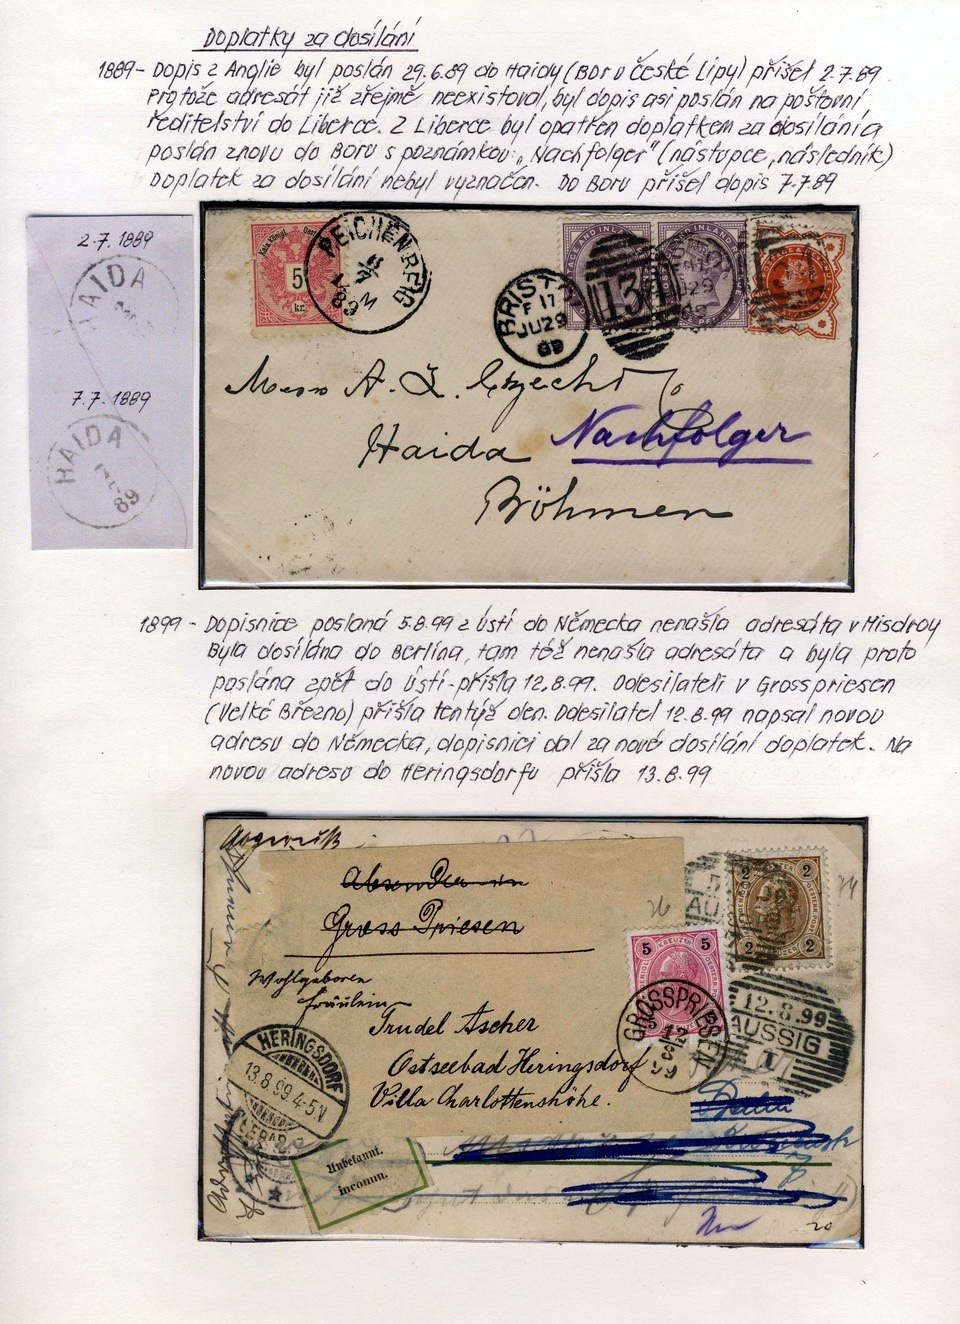 Doplatky za dosílání
1889 - Dopis z Anglie byl poslán 29.6.89 do Haidy (Bor v České Lípy) přišel 2.7.89
Protože adresát již zřejmě neexistoval, byl dopis asi poslán na poštovní
ředitelství do Liberce. Z Liberce byl opatřen doplatkem za dosílání a
poslán znovu do Boru s poznámkou „Nachfolger" (nástupce, následník)
Doplatek za dosílání nebyl vyznačen. Do Boru přišel dopis 7.7.89
2.7.1889
HAIDA
7.7.1889
HAIDA
89
5
kr.
REICHENBERG
BRISTOL
JU 29
89
134
JU 29
Messrs A.
Haida Nachfolger
Böhmen
1899 - Dopisnice poslaná 5.8.99 z Ústí do Německa nenašla adresáta v Misdroy
Byla dosílána do Berlína, tam též nenašla adresáta a byla proto
poslána zpět do Ústí - přišla 12.8.99. Odesilateli v Grosspriesen
(Velké Březno) přišla tentýž den. Odesilatel 12.8.99 napsal novou
adresu do Německa, dopisnici dal za nové dosílání doplatek. Na
novou adresu do Heringsdorfu přišla 13.8.99
Gross Priesen
Wohlgeboren
Fräulein
Trudel Ascher
Ostseebad Heringsdorf
Villa Charlottenshöhe.
5 KREUZER 5
2 2
2 2
GROSSPRIESEN
12
99
12.8.99
AUSSIG
1
HERINGSDORF
13.8.99 4-5N
Berlin
Unbekannt.
inconnu.
20